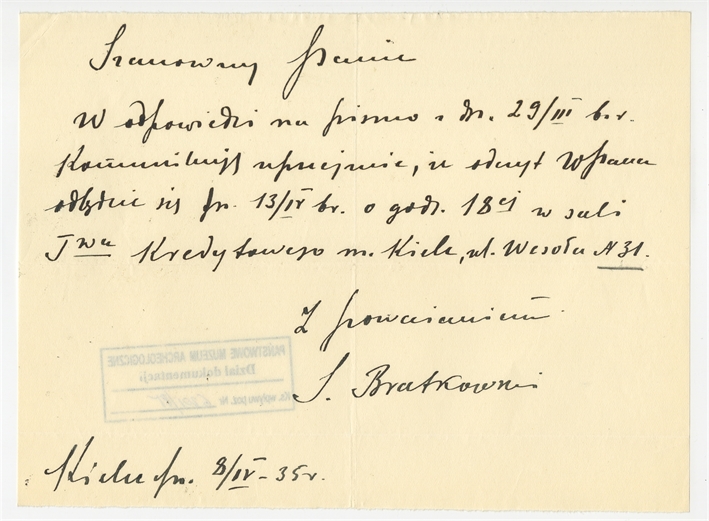 Szanowny Panie
W odpowiedzi na pismo z dn. 29/III b.r.
Komunikuję uprzejmie, iż odczyt WPana
odbędzie się dn. 13/IV br. o godz. 18ej w sali
Twa Kredytowego m. Kielc, ul. Wesoła N 31.
Z poważaniem
S. Bratkowski
PAŃSTWOWE MUZEUM ARCHEOLOGICZNE
Dział dokumentacji
Ks. wpływu poz. Nr.
Kielce dn. 8/IV - 35 r.